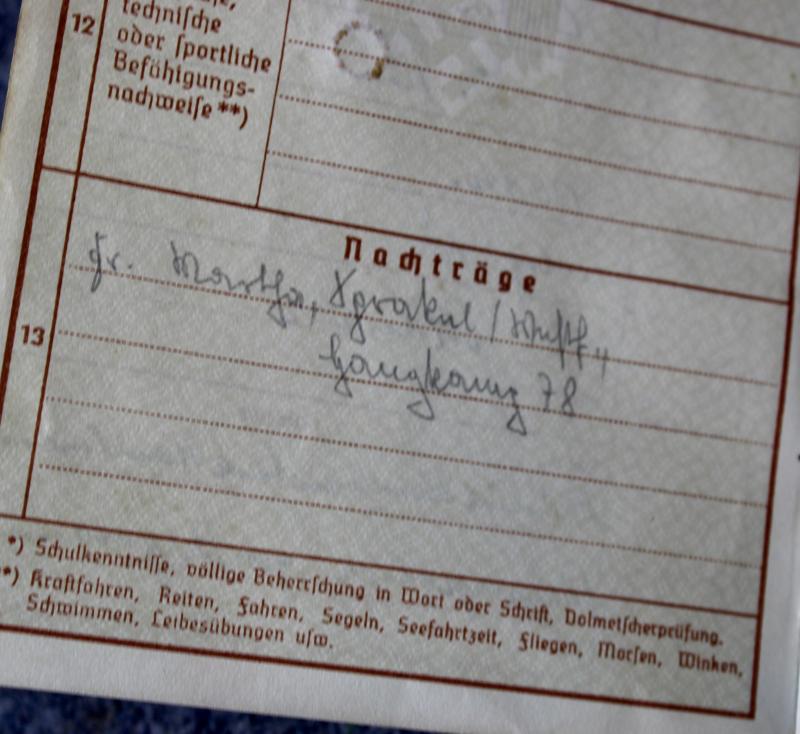 12
technische
oder sportliche
Befähigungs-
nachweise **)
Nachträge
13
Fr. Martha,
78
*) Schulkenntnisse, völlige Beherrschung in Wort oder Schrift, Dolmetscherprüfung.
**) Kraftfahren, Reiten, Fahren, Segeln, Seefahrtzeit, Fliegen, Morsen, Winken,
Schwimmen, Leibesübungen usw.